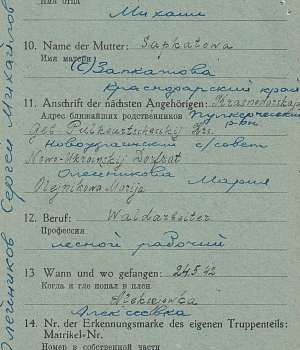 Имя отца
Михаил
10. Name der Mutter: Sapkatowa
Имя матери
(С)Запкатова
Краснодарский край
11. Anschrift der nächsten Angehörigen: Krasnodarskaja
Адрес ближайших родственников
р-он
Geb
Krs.
Новоукраинский с/совет
Nowo-Ukrainskij Dorfrat
Олейникова Мария
Olejnikowa Marija
12. Beruf: Waldarbeiter
Профессия
лесной рабочий
13 Wann und wo gefangen: 24.5.42
Когда и где попал в плен
Aleksejewka
Алексеевка
14. Nr. der Erkennungsmarke des eigenen Truppenteils:
Matrikel-Nr.
Номер в собственной части
Олейников Сергей Михайлов